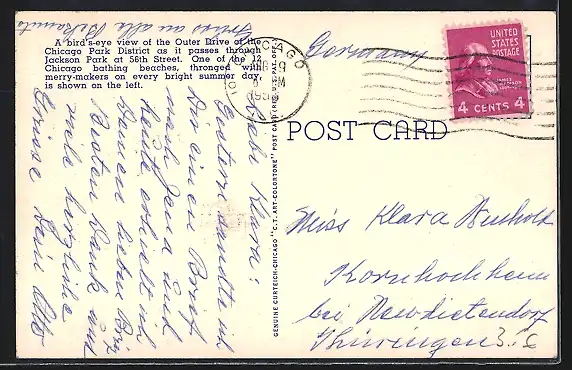 Grüsse an alle Bekannte
A bird's-eye view of the Outer Drive of the
Chicago Park District as it passes through
Jackson Park at 56th Street. One of the 12
Chicago bathing beaches, thronged with
merry-makers on every bright summer day,
is shown on the left.
Liebe Klara:
Gestern sandte ich
Dir einen Brief
nach Jena und
heute erhielt ich
Deinen lieben Brief
Besten Dank und
viele herzliche
Grüsse Dein Otto
GENUINE CURTEICH-CHICAGO "C.T. ART-COLORTONE" POST CARD (REG. U.S. PAT. OFF.)
CHICAGO
Germany
UNITED
STATES
POSTAGE
4 CENTS 4
POST CARD
Miss Klara
Kornhochheim
bei Neudietendorf
Thüringen